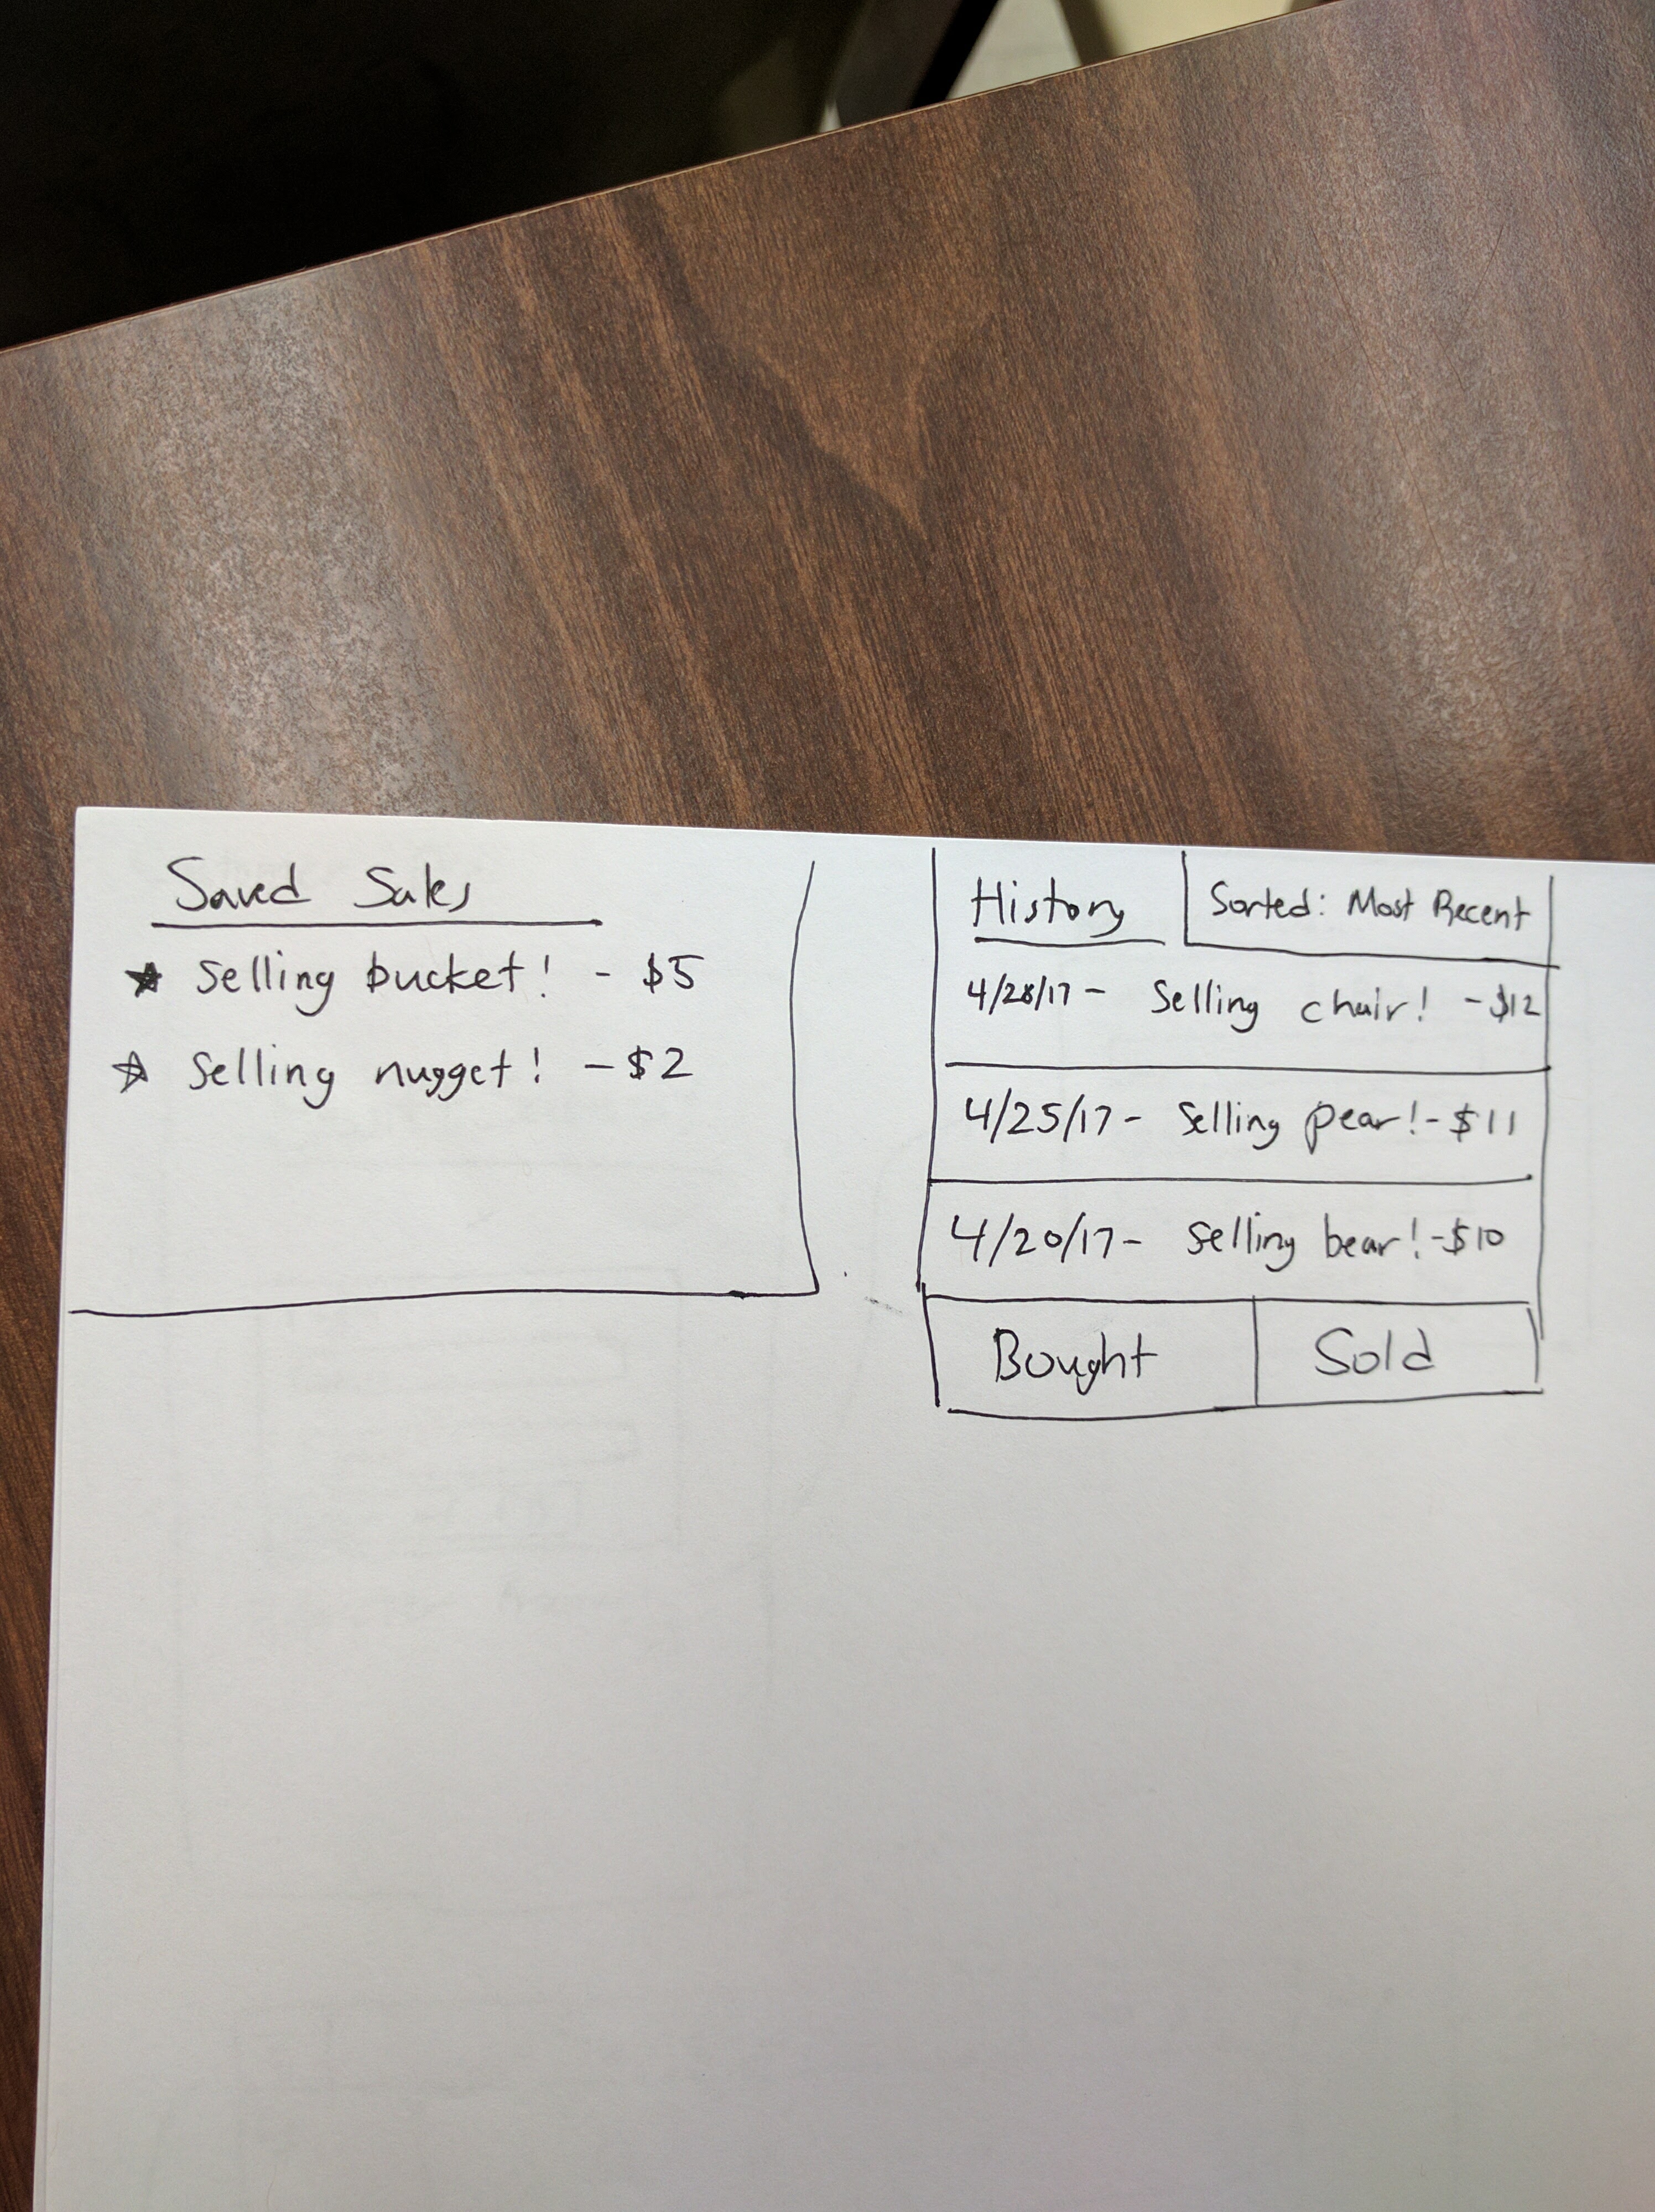 Saved Sales
★ Selling bucket! - $5
☆ Selling nugget! - $2
History
Sorted: Most Recent
4/28/17 - Selling chair! - $12
4/25/17 - Selling pear! - $11
4/20/17 - Selling bear! - $10
Bought
Sold